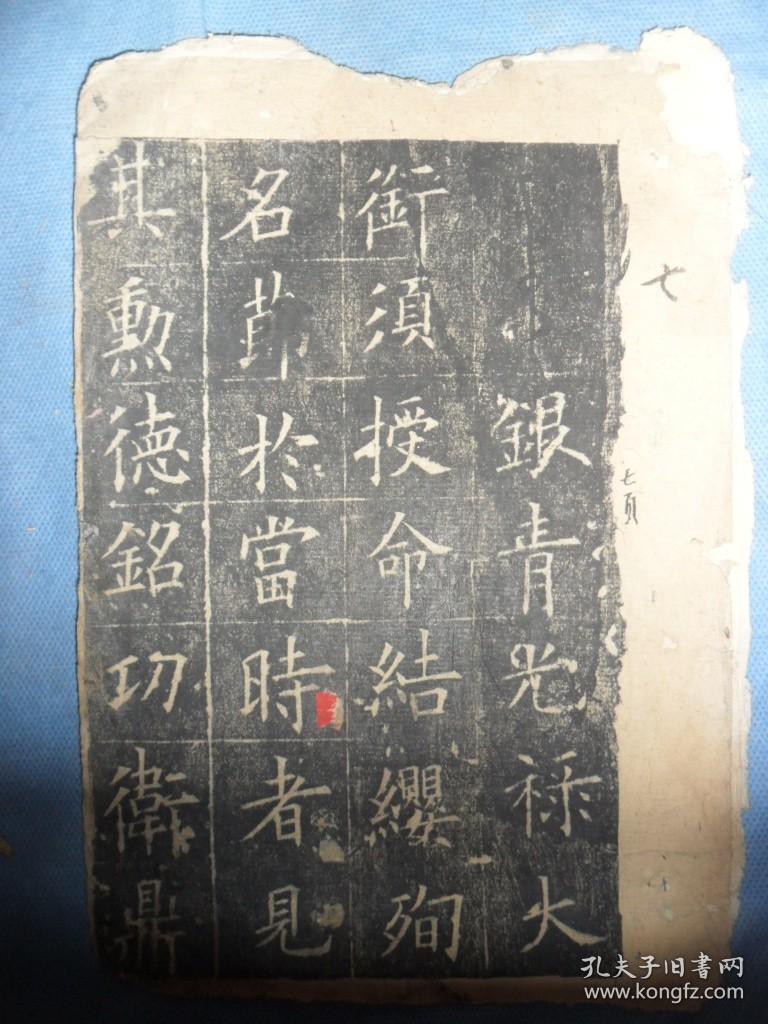 銀青光祿大
銜須授命結纓殉
名節於當時者見
其勲德銘功衛鼎
七
七頁
孔夫子旧書网
www.kongfz.com